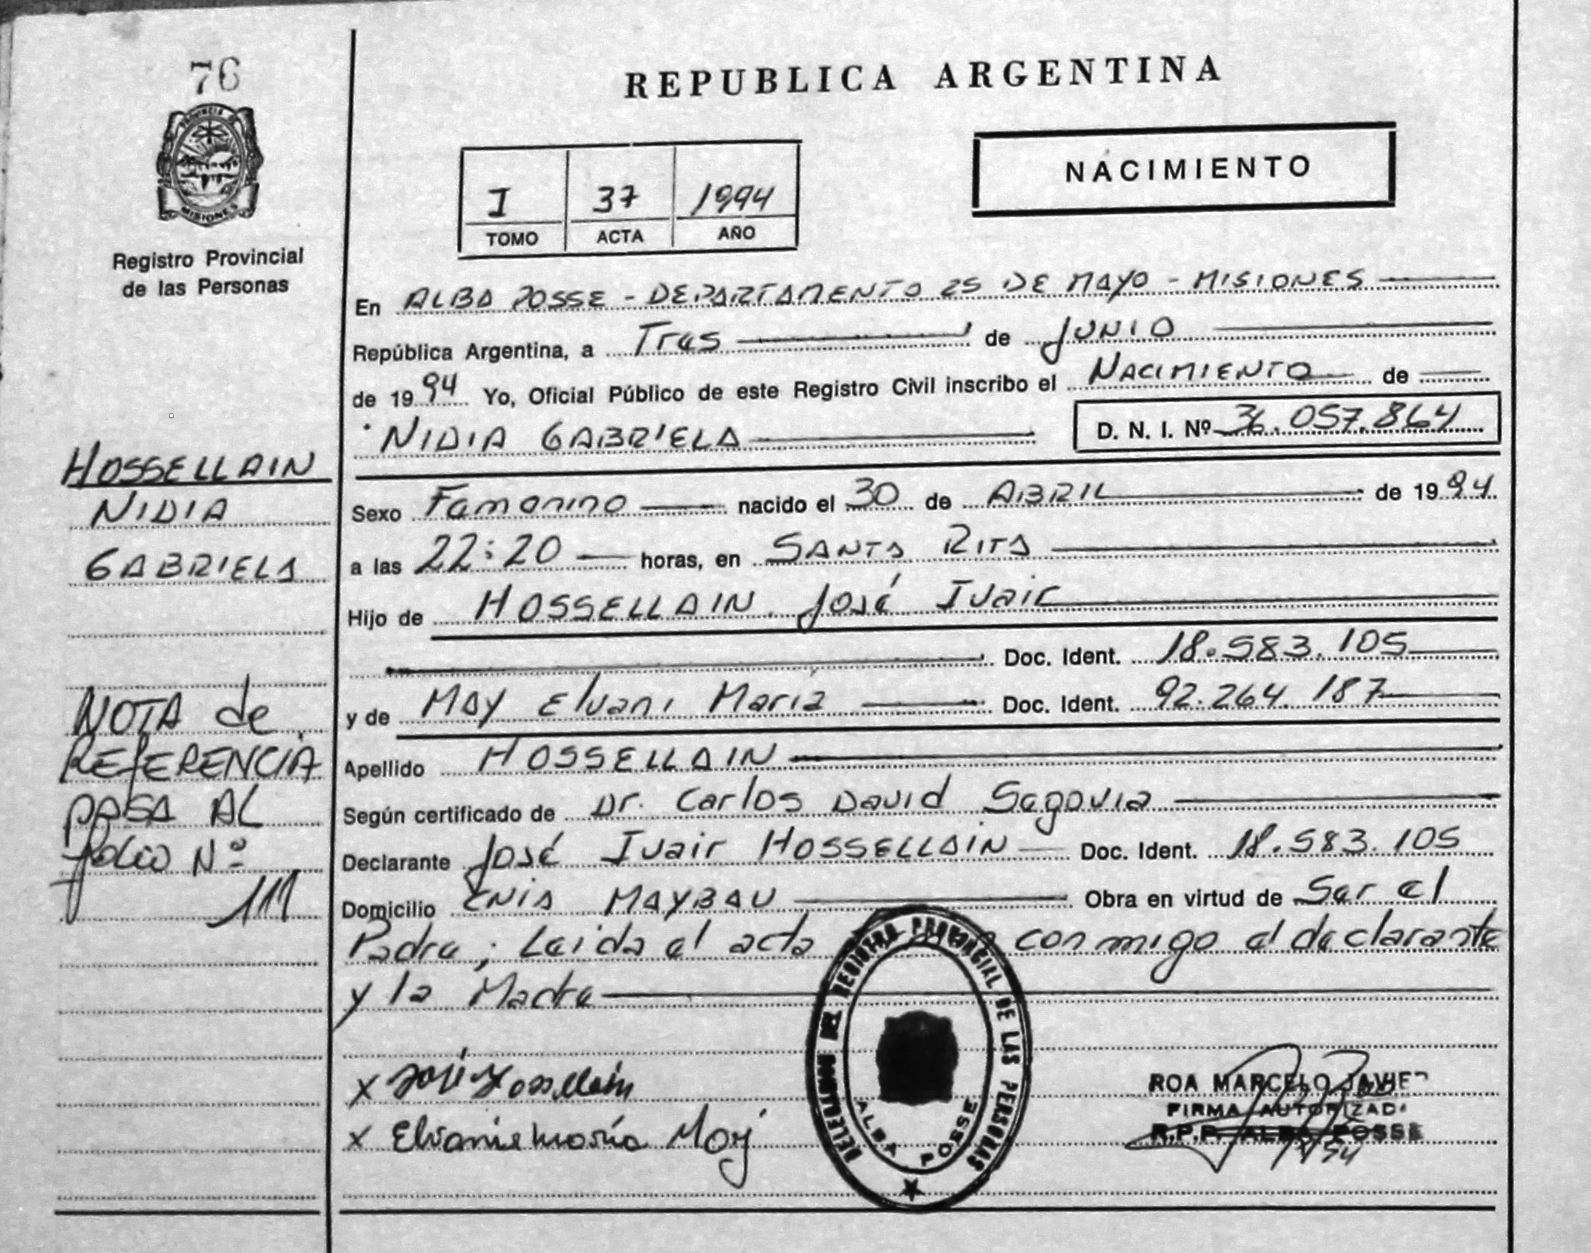 76
PROVINCIA DE
MISIONES
Registro Provincial
de las Personas
HOSSELLAIN
NIDIA
GABRIELA
NOTA de
REFERENCIA
PASA AL
folio Nº
111
REPUBLICA ARGENTINA
NACIMIENTO
I 37 1994
TOMO ACTA AÑO
En ALBA POSSE - DEPARTAMENTO 25 DE MAYO - MISIONES
República Argentina, a Tres de JUNIO
de 1994 Yo, Oficial Público de este Registro Civil inscribo el NACIMIENTO de
NIDIA GABRIELA D. N. I. Nº 36.057.864
Sexo Femenino nacido el 30 de ABRIL de 1994
a las 22:20 horas, en SANTA RITA
Hijo de HOSSELLAIN José Ivair
Doc. Ident. 18.583.105
y de MAY Elvani Maria Doc. Ident. 92.264.187
Apellido HOSSELLAIN
Según certificado de Dr. Carlos David Segovia
Declarante José Ivair HOSSELLAIN Doc. Ident. 18.583.105
Domicilio MAYBAU Obra en virtud de Ser el
Padre; Leida el acta conmigo el declarante
y la Madre
x José Hossellain
x María May
DELEGACION DEL REGISTRO PROVINCIAL DE LAS PERSONAS
ALBA POSSE
ROA MARCELO JAVIER
FIRMA AUTORIZADA
R.P.P. ALBA POSSE